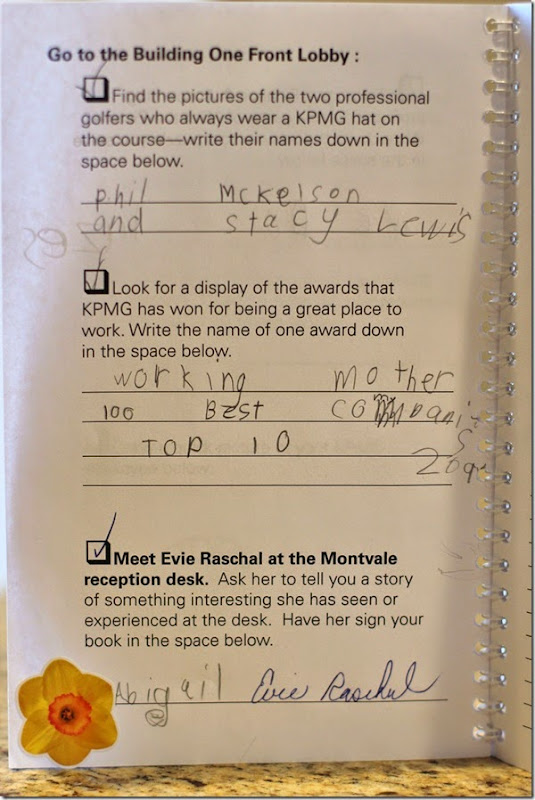 Go to the Building One Front Lobby :
Find the pictures of the two professional
golfers who always wear a KPMG hat on
the course—write their names down in the
space below.
phil Mckelson
and stacy Lewis
Look for a display of the awards that
KPMG has won for being a great place to
work. Write the name of one award down
in the space below.
working mother
100 BEst companies
TOP 10
Meet Evie Raschal at the Montvale
reception desk. Ask her to tell you a story
of something interesting she has seen or
experienced at the desk. Have her sign your
book in the space below.
Abigail Evie Raschal